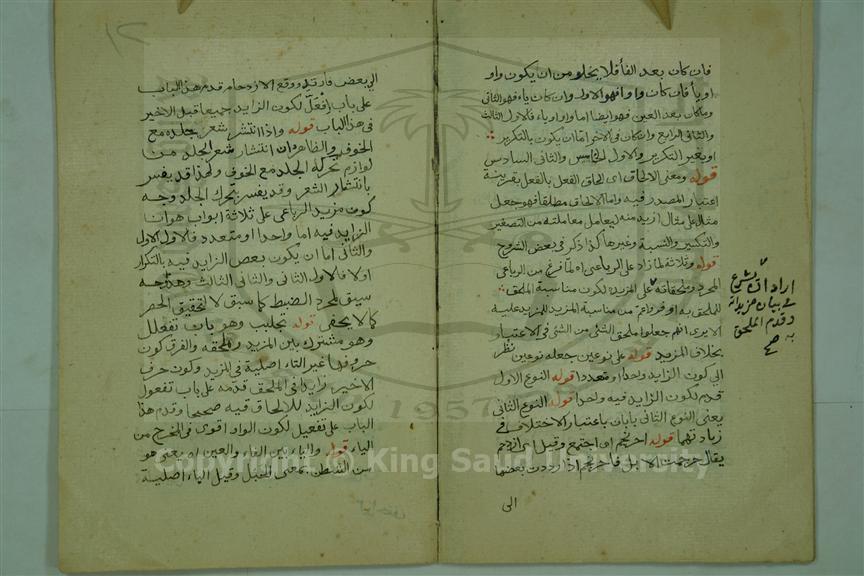 فان كان بعد الفأ فلا يخلو من ان يكون واو
او يأ فان كان واوا فهو الاول وان كان ياء فهو الثانى
وما كان بعد العين فهو ايضا اما واو او ياء فالاول الثالث
والثانى الرابع وان كان فى الاخر اما ان يكون بالتكرير
او بغير التكرير والاول الخامس والثانى السادس
قوله ومعنى الالحاق اى الحاق الفعل بالفعل بقرينة
اعتبار المصدر فيه واما الالحاق مطلقا فهو جعل
مثال على مثال ازيد منه ليعامل معاملته من التصغير
والتكسير والنسبة وغيرها كذا ذكر فى بعض الشروح
قوله وثلاثة لما زاد على الرباعى اى لما فرغ من الرباعى
المجرد وملحقاته على المزيد لكون مناسبة الملحق
للملحق به اوفر من مناسبة المزيد للمزيد عليه
الا يرى انهم جعلوا ملحق الشئ من الشئ فى الاعتبار
بخلاف المزيد قوله على نوعين جعله نوعين نظر
الى كون الزايد واحدا او متعددا قوله النوع الاول
قدم لكون الزايد فيه واحدا قوله النوع الثانى
يعنى النوع الثانى بابان باعتبار الاختلاف فى
زيادتهما قوله احرنجم اى اجتمع وقيل اى ازدحم
يقال حرجمت الابل فاحرنجم اذا رددت بعضها
الى
اراد ان يشرع
فى بيان مزيداته
وقدم الملحق
به صح
الى بعض فارتد ووقع الازدحام قدم هذا الباب
على باب افعلل لكون الزايد جميعا قبل الاخير
فى هذا الباب قوله واذا انتشر شعر جلده مع
الخوف والظاهر ان انتشار شعر الجلد من
لوازم تحركه الجلد مع الخوف ولهذا قد يفسر
بانتشار الشعر وقد يفسر بتحرك الجلد وجه
كون مزيد الرباعى على ثلاثة ابواب هو ان
الزايد فيه اما واحد او متعدد فالاول الاول
والثانى اما ان يكون بعض الزايد فيه بالتكرار
اولا فالاول الثانى والثانى الثالث وهذا وجه
سيق لمجرد الضبط كما سبق لا لتحقيق الحصر
كما لا يخفى قوله تجلبب وهو باب تفعلل
وهو مشترك بين المزيد والملحقه والفرق كون
حروفها غير التاء اصلية فى المزيد وكون حرف
الاخير زايدا فى الملحق قدمه على باب تفعول
لكون الزايد للالحاق فيه صحيحا وقدم هذا
الباب على تفعيل لكون الواو اقوى فى المخرج من
الياء قوله والياء بين الفاء والعين اه يعنى هو
من الشطن بمعنى المقبل وقيل الياء اصلية